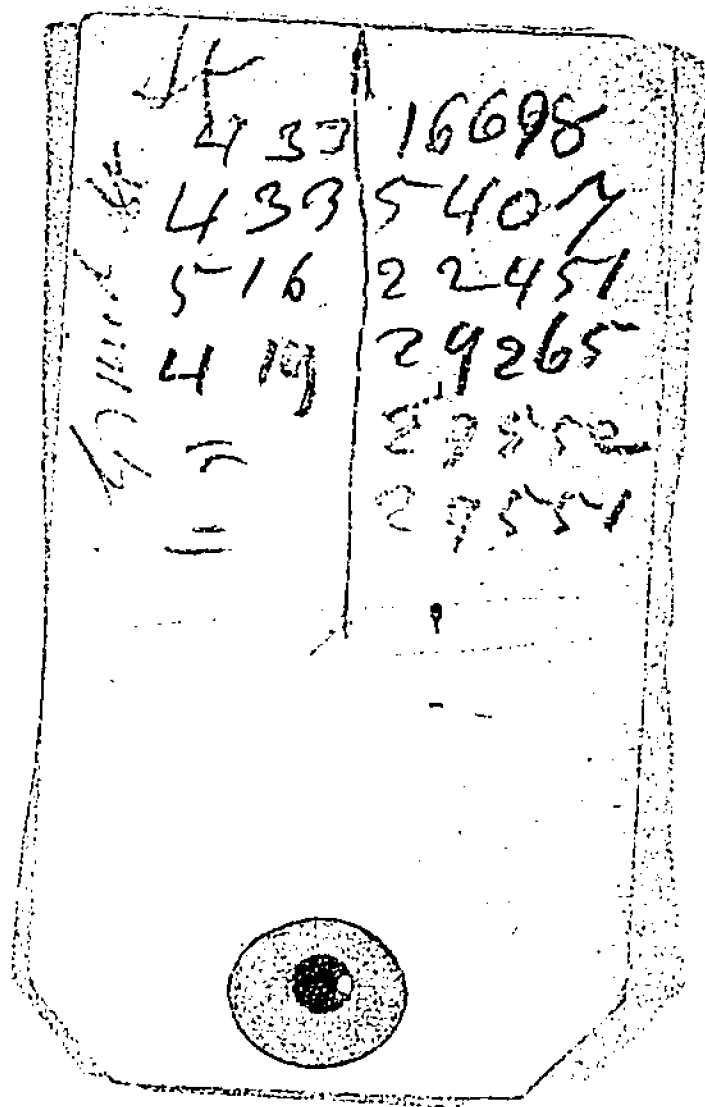 433 16698
433 5407
516 22451
4 19 29265
= 29552
= 29551